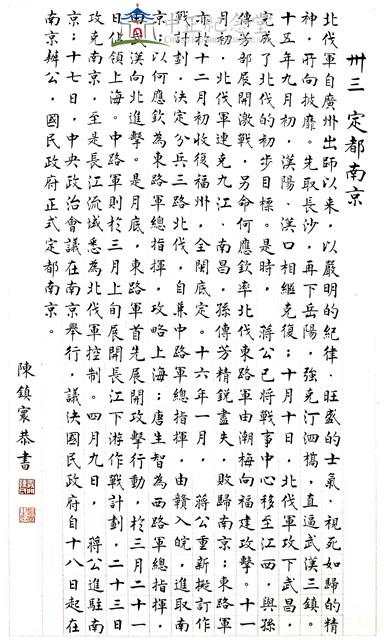 卅三 定都南京
北伐軍自廣州出師以來，以嚴明的紀律、旺盛的士氣、視死如歸的精
神，所向披靡。先取長沙，再下岳陽，強克汀泗橋，直逼武漢三鎮。
十五年九月初，漢陽、漢口相繼克復；十月十日，北伐軍攻下武昌，
完成了北伐的初步目標。是時，蔣公已將戰事中心移至江西，與孫
傳芳部展開激戰，另命何應欽率北伐東路軍由潮梅向福建攻擊。十一
月初，北伐軍連克九江、南昌，孫傳芳精銳盡失，敗歸南京；東路軍
亦於十二月初收復福州，全閩底定。十六年一月，蔣公重新擬訂作
戰計劃，決定分兵三路北伐，自兼中路軍總指揮，由贛入皖，進取南
京；以何應欽為東路軍總指揮，攻略上海；唐生智為西路軍總指揮，
由武漢向北進擊。是月底，東路軍首先展開攻擊行動，於三月二十一
日佔領上海。中路軍則於三月上旬展開長江下游作戰計劃，二十三日
攻克南京，至是長江流域悉為北伐軍控制。四月九日，蔣公進駐南
京；十七日，中央政治會議在南京舉行，議決國民政府自十八日起在
南京辦公，國民政府正式定都南京。
陳鎮寰恭書
中正紀念堂